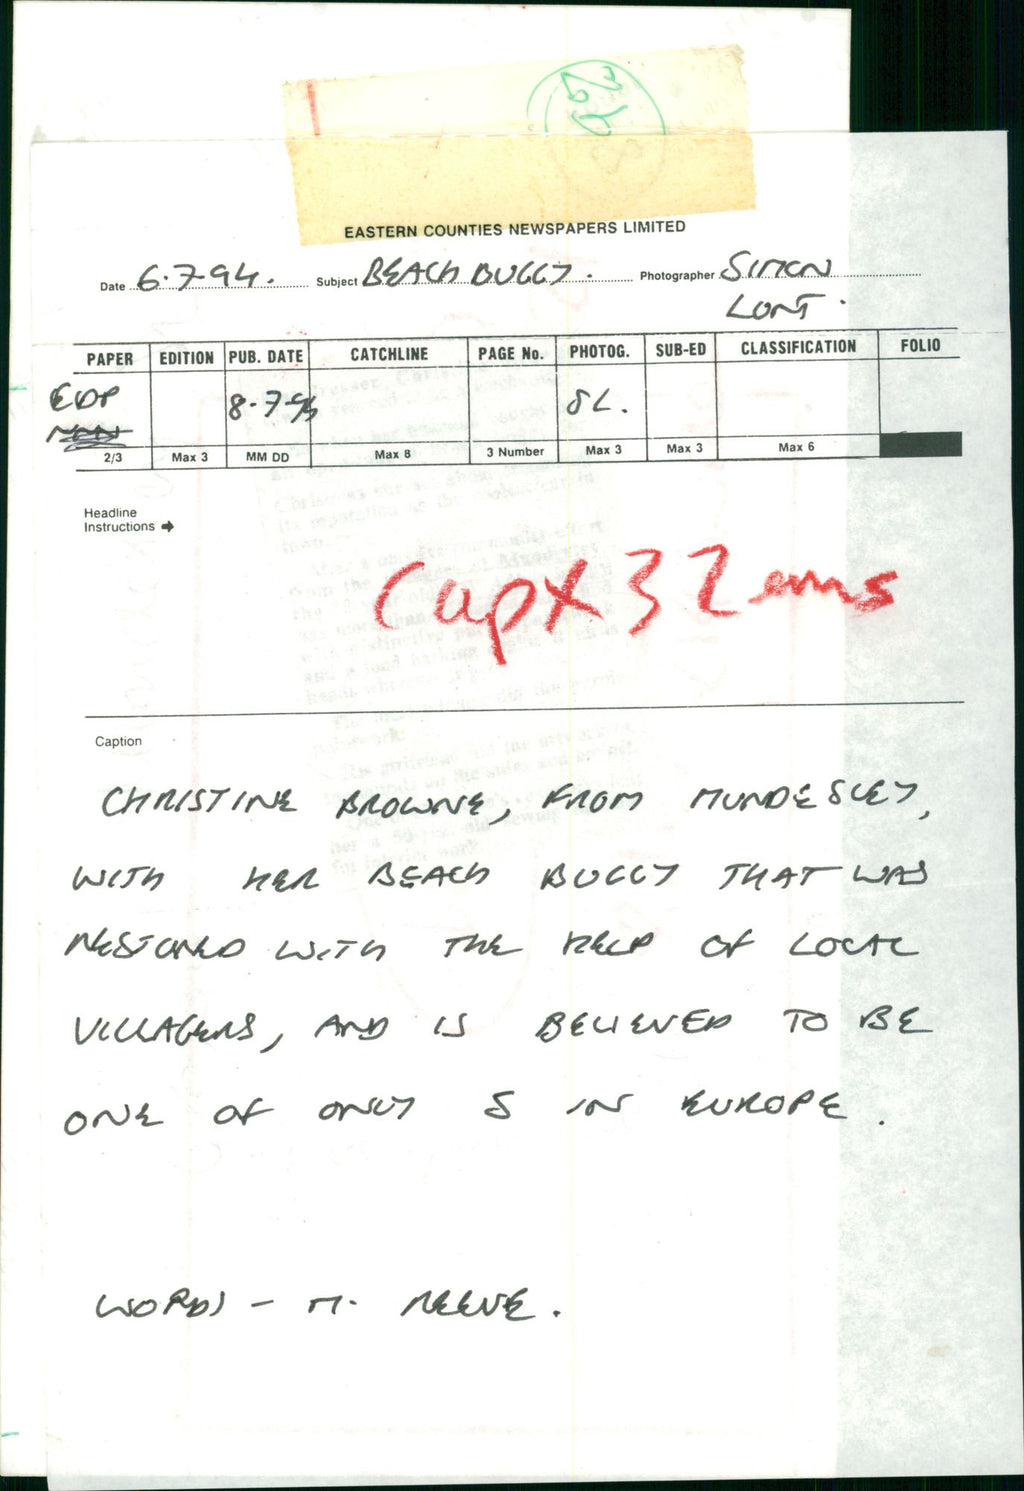 EASTERN COUNTIES NEWSPAPERS LIMITED
Date 6.7.94. Subject BEACH BUGGY. Photographer SIMON
LUNT.
PAPER EDITION PUB. DATE CATCHLINE PAGE No. PHOTOG. SUB-ED CLASSIFICATION FOLIO
EDP 8.7.94 SL.
2/3 Max 3 MM DD Max 8 3 Number Max 3 Max 3 Max 6
Headline
Instructions
Capx 32ems
Caption
CHRISTINE BROWNE, FROM MUNDESLEY,
WITH HER BEACH BUGGY THAT WAS
RESTORED WITH THE HELP OF LOCAL
VILLAGERS, AND IS BELIEVED TO BE
ONE OF ONLY 5 IN EUROPE.
WORDS - M. REEVE.